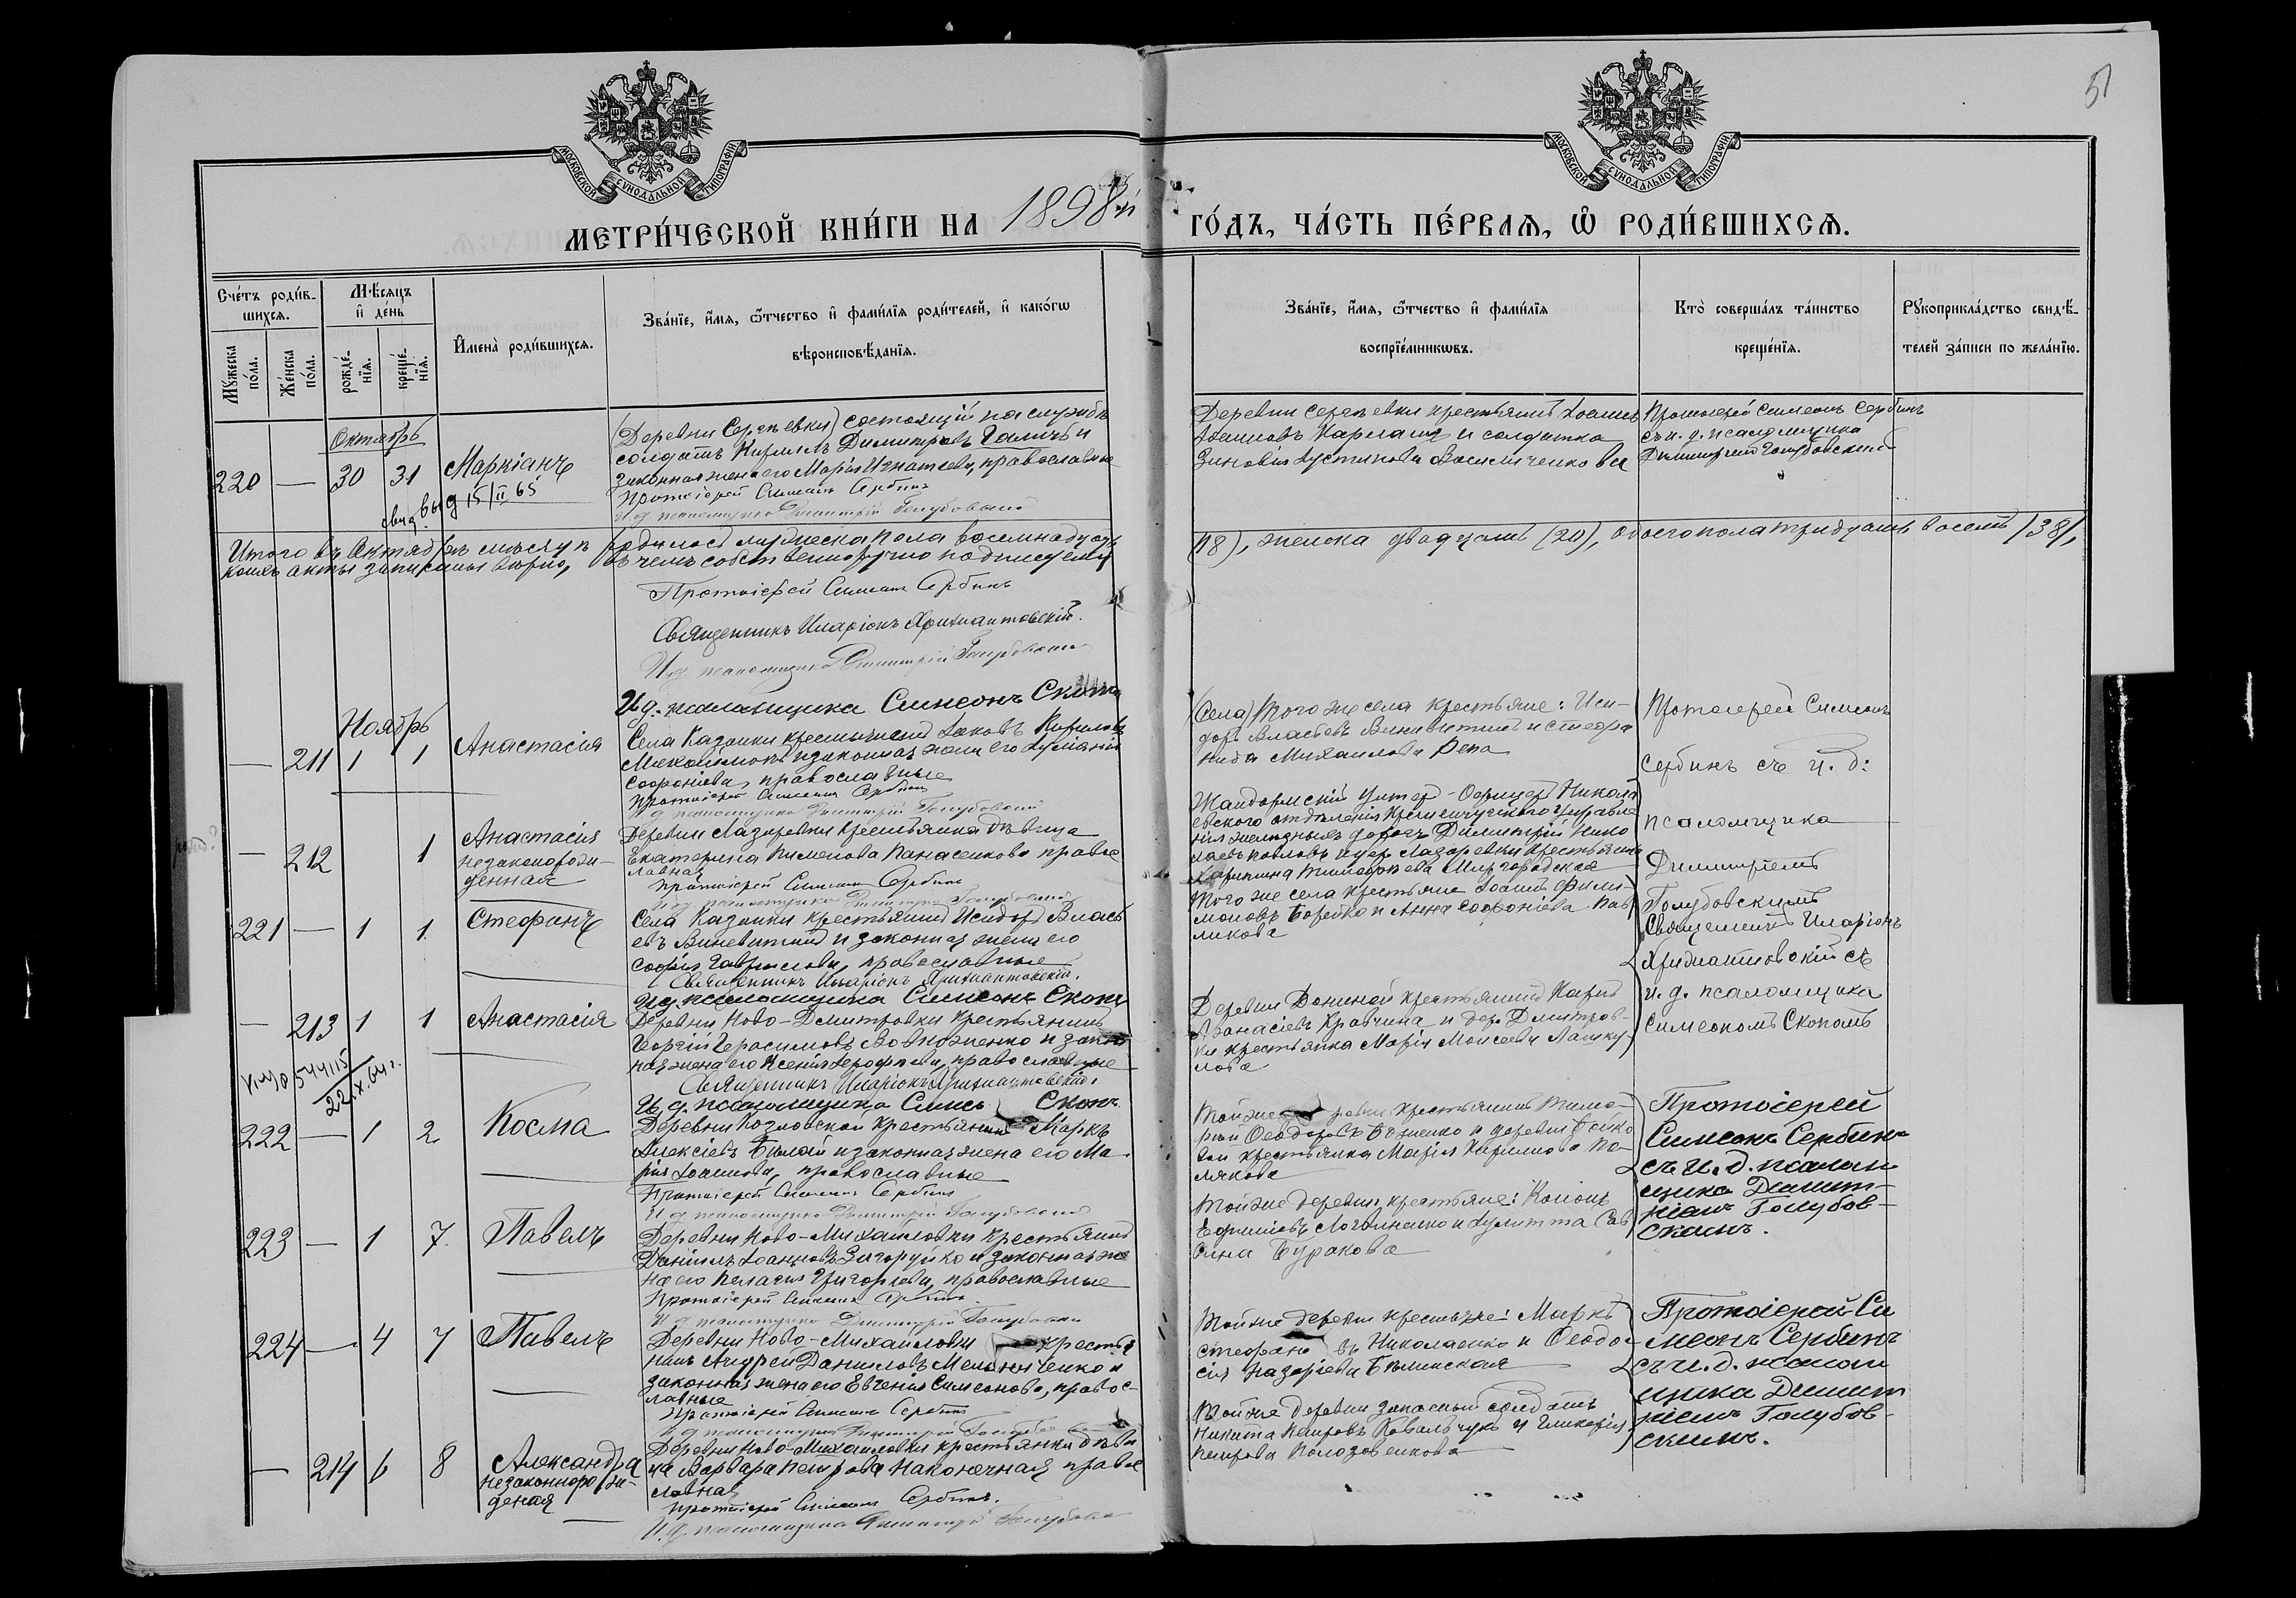 51
МОСКОВСКОЙ СѴНОДАЛЬНОЙ ТИПОГРАФІИ
МОСКОВСКОЙ СѴНОДАЛЬНОЙ ТИПОГРАФІИ
МЕТРИ́ЧЕСКОЙ КНИ́ГИ НА 1898й ГО́ДЪ, ЧА́СТЬ ПЕ́РВАѦ, Ѡ҆ РОДИ́ВШИХСѦ.
Сче́тъ роди́в-
шихсѧ.
Мꙋ́жеска
по́ла.
Же́нска
по́ла.
М́ѣсѧцъ
и҆ де́нь
рожде́-
нїѧ.
креще́-
нїѧ.
И҆мена̀ роди́вшихсѧ.
Зва́нїе, и҆́мѧ, ѻ҆́тчество и҆ фами́лїѧ роди́телей, и҆ како́гѡ
вѣроисповѣ́данїѧ.
Зва́нїе, и҆́мѧ, ѻ҆́тчество и҆ фами́лїѧ
воспрїе́мникѡвъ.
Кто̀ соверша́лъ та́инство
креще́нїѧ.
Рꙋкоприкла́дство свидѣ́-
телей за́писи по жела́нїю.
Октябрь
220 — 30 31 Маркіанъ
свид. выд 15/II 65
Деревни Сергѣевки состоящій на службѣ
солдатъ Кириллъ Димитріевъ Галичъ и
законная жена его Марія Игнатіева, православные
Протоіерей Симеонъ Сербинъ
И. д. псаломщика Димитрій Голубовскій
Деревни Сергѣевки крестьянинъ Іоаннъ
Іоанновъ и солдатка
Зиновія Іустинова Василиченкова
Протоіерей Симеонъ Сербинъ
съ и. д. псаломщика
Димитріемъ Голубовскимъ
Итого въ Октябрѣ мѣсяцѣ родилось мужеска пола восемнадцать (18), женска двадцать (20), обоего пола тридцать восемь (38),
коихъ акты записаны вѣрно, въ чемъ собственноручно подписуемся
Протоіерей Симеонъ Сербинъ
Священникъ Иларіонъ Хрижантовскій.
И. д. псаломщика Димитрій Голубовскій
И. д. псаломщика Симеонъ Скопъ
Ноябрь
— 211 1 1 Анастасія
Села Казанки крестьянинъ Іаковъ Кириловъ
и законная жена его Іуліанія
Софроніева, православные
Протоіерей Симеонъ Сербинъ
И. д. псаломщика Димитрій Голубовскій
(Села) Того же села крестьяне: Иси-
доръ Власіевъ и Стефа
нида Михаилова Репа
Протоіерей Симеонъ
Сербинъ съ и. д.
псаломщика
Димитріемъ
Голубовскимъ
— 212 1 Анастасія
незаконорож-
денная
Деревни Лазаревки крестьянка дѣвица
Екатерина Пименова Панасенкова право
славная
Протоіерей Симеонъ Сербинъ
И. д. псаломщика Димитрій Голубовскій
Жандармскій унтер-офицеръ Никола
евского отдѣленія Кременчугскаго управле
нія желѣзныхъ дорогъ Димитрій Нико
лаевъ Павловъ и дер. Лазаревки крестьянка
Харитина Тимофеева Миргородская
221 — 1 1 Стефанъ
Села Казанки крестьянинъ Исидоръ Власі
евъ и законная жена его
Софія Гавриилова, православные
Священникъ Иларіонъ Хрижантовскій.
И. д. псаломщика Симеонъ Скопъ
Того же села крестьяне Іоаннъ Фили-
моновъ и Анна Софоніева Пав
ликова
Священникъ Иларіонъ
Хрижантовскій съ
и. д. псаломщика
Симеономъ Скопомъ
— 213 1 1 Анастасія
544115
22.X.64 г.
Деревни Ново-Дмитровки крестьянинъ
Георгій Герасимовъ и закон
ная жена его Ксенія Іерофеева, православные
Священникъ Иларіонъ Хрижантовскій.
И. д. псаломщика Симео Скопъ
Деревни крестьянинъ Карпъ
Аѳанасіевъ Кравчина и дер. Дмитров-
ки крестьянка Марія Моисеева
222 — 1 2 Косма
Деревни Козловской крестьянинъ Маркъ
Алексіевъ Бѣлый и законная жена его Ма-
рія Іоаннова, православные
Протоіерей Симеонъ Сербинъ
И. д. псаломщика Димитрій Голубовскій
Той же деревни крестьянинъ Тимо-
фей Ѳеодоровъ и деревни
крестьянка Марія Кирилова По-
лякова
Протоіерей
Симеонъ Сербинъ
съ и. д. псалом-
щика Димит-
ріемъ Голубов-
скимъ.
223 — 1 7 Павелъ
Деревни Ново-Михайловки крестьянинъ
Даніилъ Іоанновъ Загоруйко и законная же
на его Пелагія Григоріева, православные
Протоіерей Симеонъ Сербинъ
И. д. псаломщика Димитрій Голубовскій
Той же деревни крестьяне: Кононъ
Ефиміевъ и Іулитта Сав
Буракова
224 — 4 7 Павелъ
Деревни Ново-Михайловки крестья
нинъ Андрей Даниловъ и
законная жена его Евгенія Симеонова, правос-
лавные
Протоіерей Симеонъ Сербинъ
И. д. псаломщика Димитрій Голубовскій
Той же деревни крестьяне: Маркъ
Стефановъ Николаенко и Ѳеодо-
сія Назаріева
Протоіерей Си
меонъ Сербинъ
съ и. д. псалом
щика Димит
ріемъ Голубов-
скимъ.
— 214 6 8 Александра
незаконнорож-
деная
Деревни Ново-Михайловки крестьянка дѣви
ца Варвара Петрова Наконечная право
славная
Протоіерей Симеонъ Сербинъ.
И. д. псаломщика Димитрій Голубовскій
Той же деревни запасный солдатъ
Никита Петровъ Ковальчукъ и Гликерія
Петрова